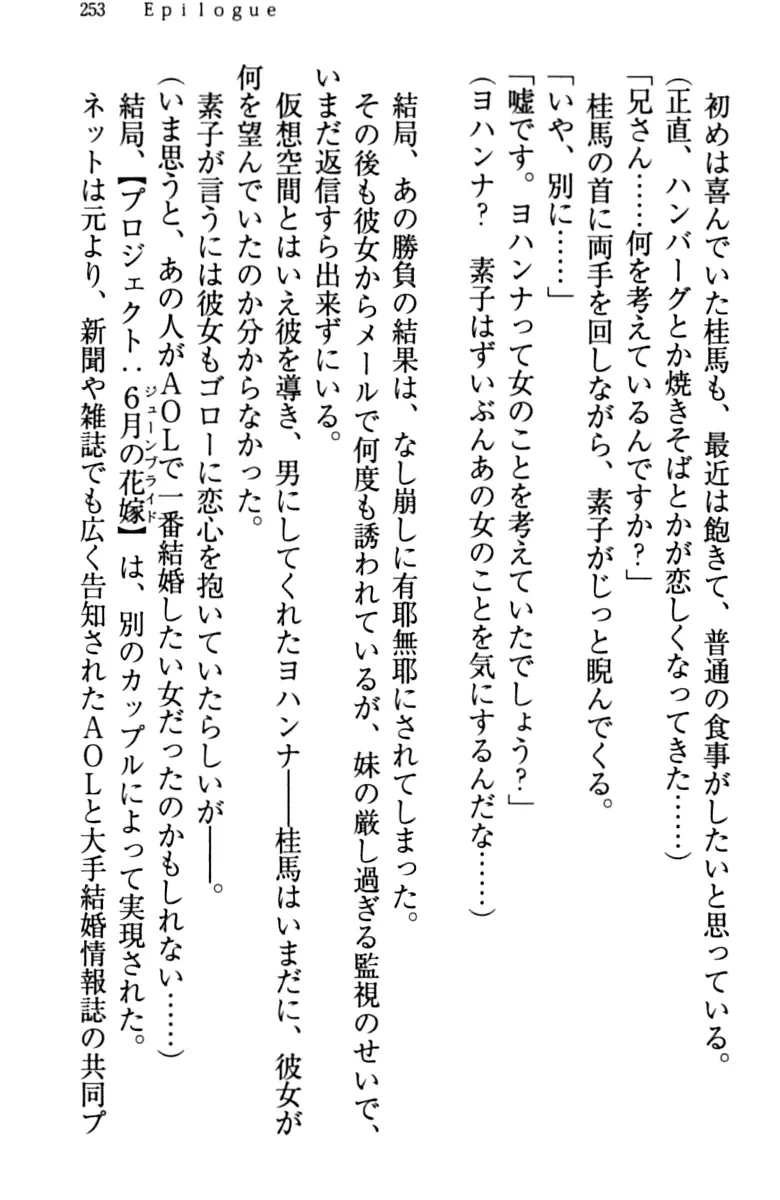 253　Epilogue
　初めは喜んでいた桂馬も、最近は飽きて、普通の食事がしたいと思っている。
（正直、ハンバーグとか焼きそばとかが恋しくなってきた……）
「兄さん……何を考えているんですか？」
　桂馬の首に両手を回しながら、素子がじっと睨んでくる。
「いや、別に……」
「嘘です。ヨハンナって女のことを考えていたでしょう？」
（ヨハンナ？　素子はずいぶんあの女のことを気にするんだな……）
　結局、あの勝負の結果は、なし崩しに有耶無耶にされてしまった。
　その後も彼女からメールで何度も誘われているが、妹の厳し過ぎる監視のせいで、
いまだ返信すら出来ずにいる。
　仮想空間とはいえ彼を導き、男にしてくれたヨハンナ――桂馬はいまだに、彼女が
何を望んでいたのか分からなかった。
　素子が言うには彼女もゴローに恋心を抱いていたらしいが――。
（いま思うと、あの人がＡＯＬで一番結婚したい女だったのかもしれない……）
　結局、【プロジェクト：６月の花嫁】は、別のカップルによって実現された。
ジューンブライド
　ネットは元より、新聞や雑誌でも広く告知されたＡＯＬと大手結婚情報誌の共同プ